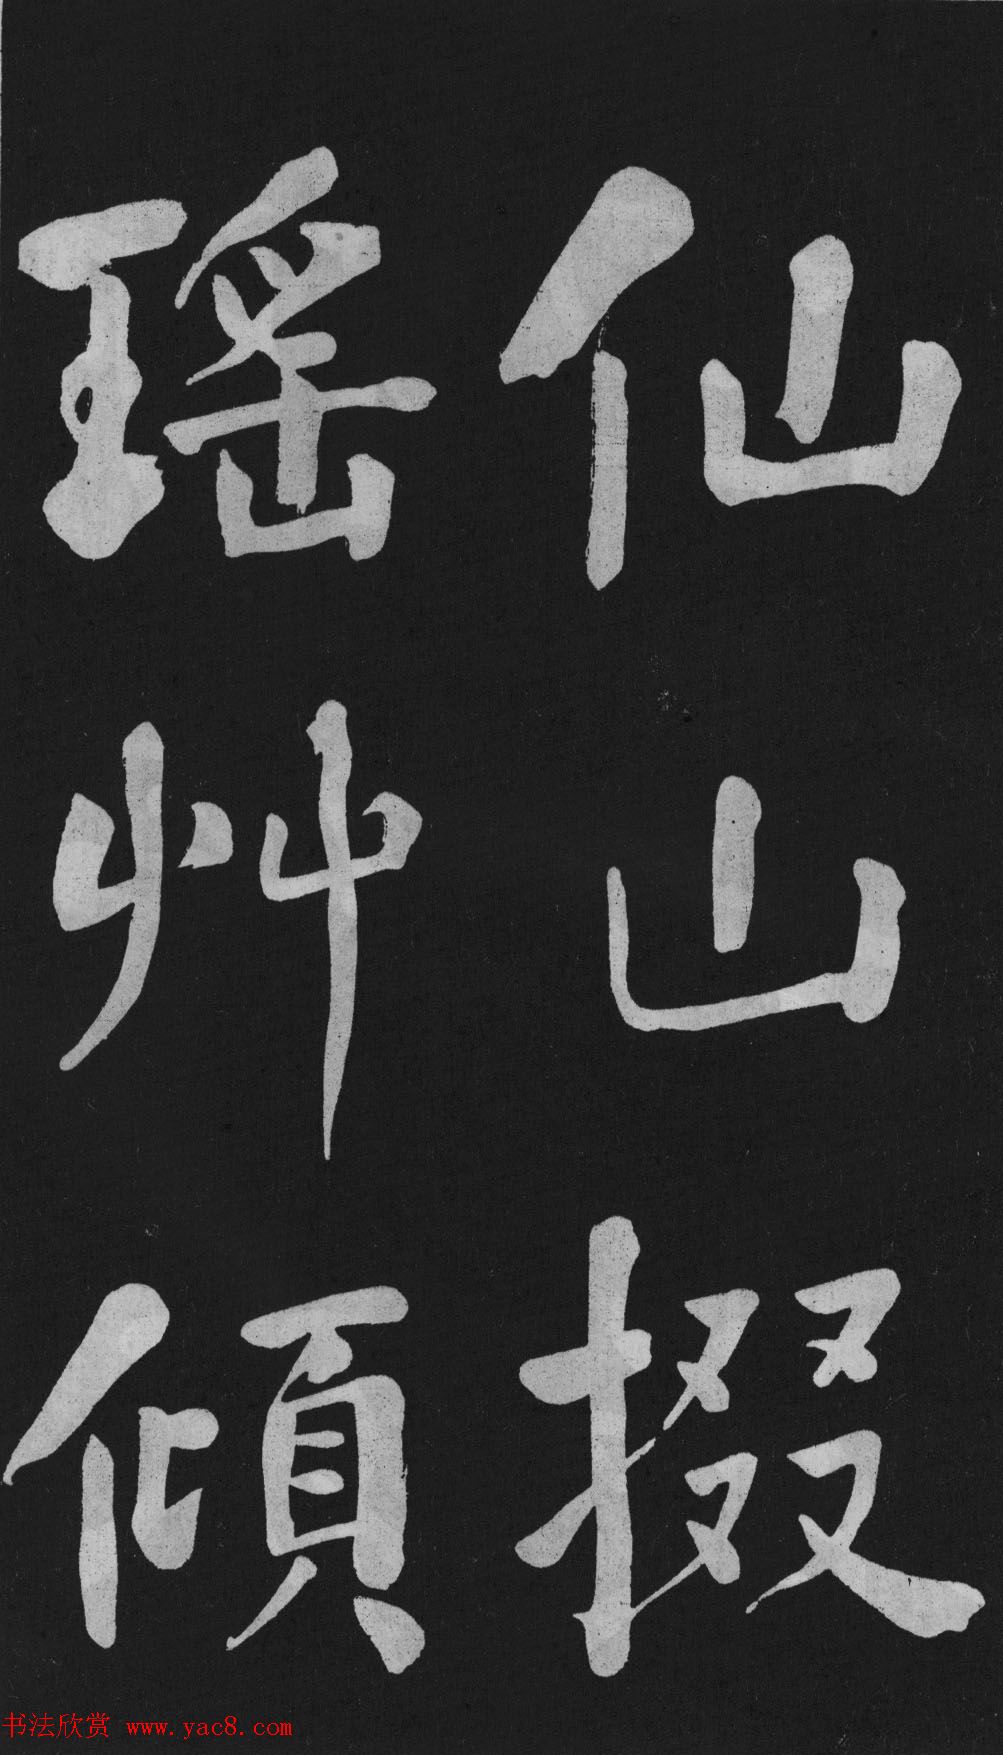 仙山掇
瑶艸傾
书法欣赏 www.yac8.com